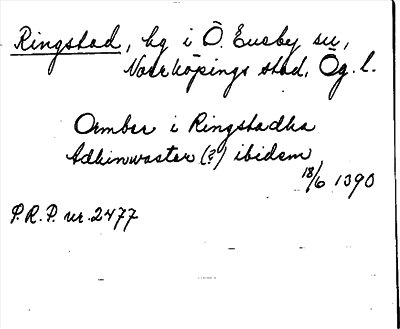 Ringstad, hg i Ö. Eneby sn,
Norrköpings stad, Ög. l.
Ambør i Ringstadha
Adhinwaster (?) ibidem
18/6 1390
P.R.P. nr. 2477